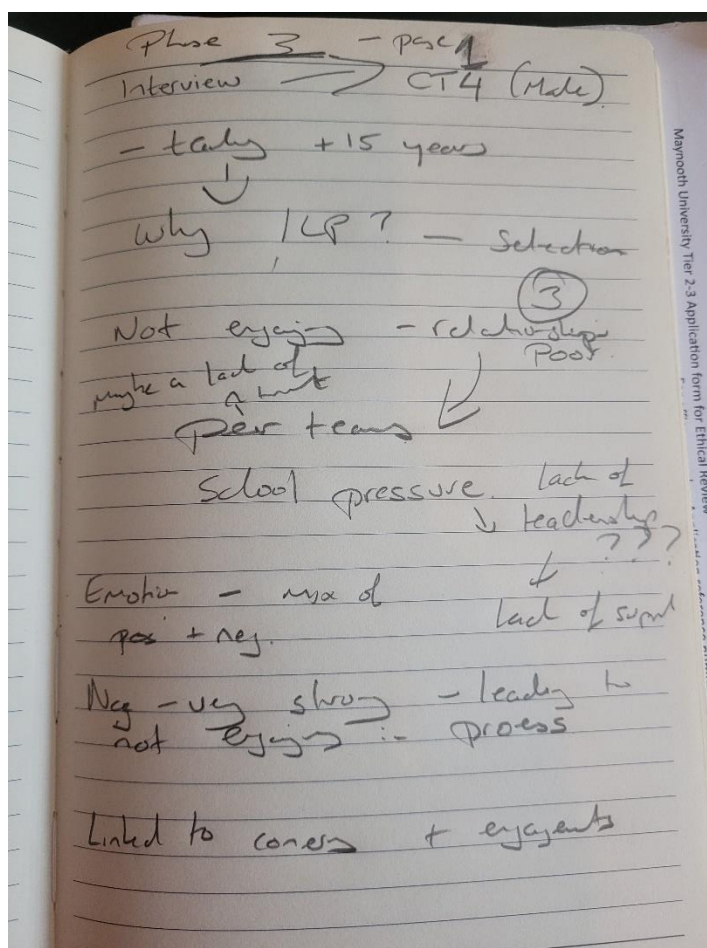 Phase 3 - page 1
Interview CT4 (Male)
- +15 years
Why ILP? - Selection
3
Not engaging - relationships
Poor
Maybe a lack of
teams
School pressure. lack of
leadership
???
Emotion - mix of
pos + neg.
lack of
Neg - very strong - leading to
not engaging in process
Linked to + engagements
Maynooth University Tier 2-3 Application form for Ethical Review